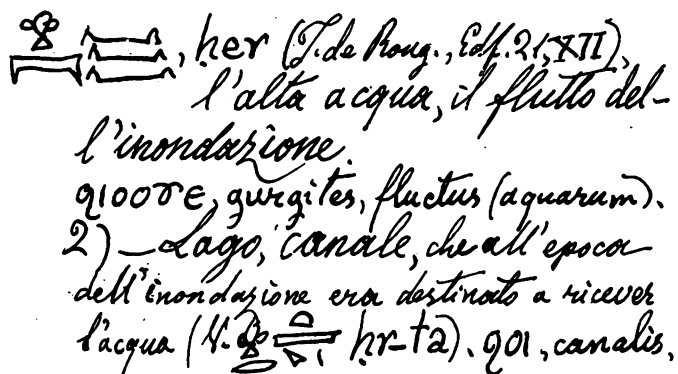 , ḥer (J. de Roug., Edf. 21, XII),
l'alta acqua, il flutto del-
l'inondazione.
ϥⲓⲟⲟⲩⲉ, gurgites, fluctus (aquarum).
2) — Lago, canale, che all'epoca
dell'inondazione era destinato a ricever
l'acqua (V. ḥr-ta). ϥⲟⲓ, canalis,